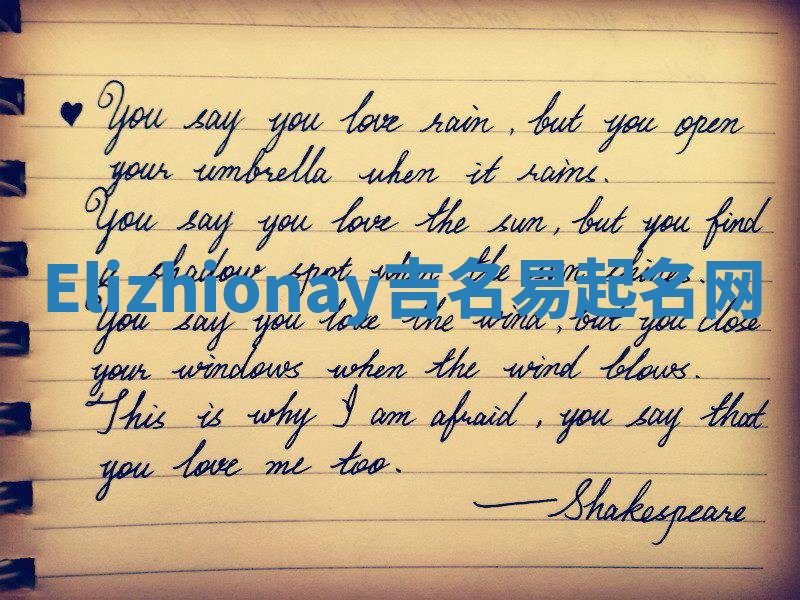 ♥ You say you love rain, but you open
your umbrella when it rains.
You say you love the sun, but you find
a shadow spot when the sun shines.
Elizhionay吉名易起名网
You say you love the wind, but you close
your windows when the wind blows.
This is why I am afraid, you say that
you love me too.
—Shakespeare